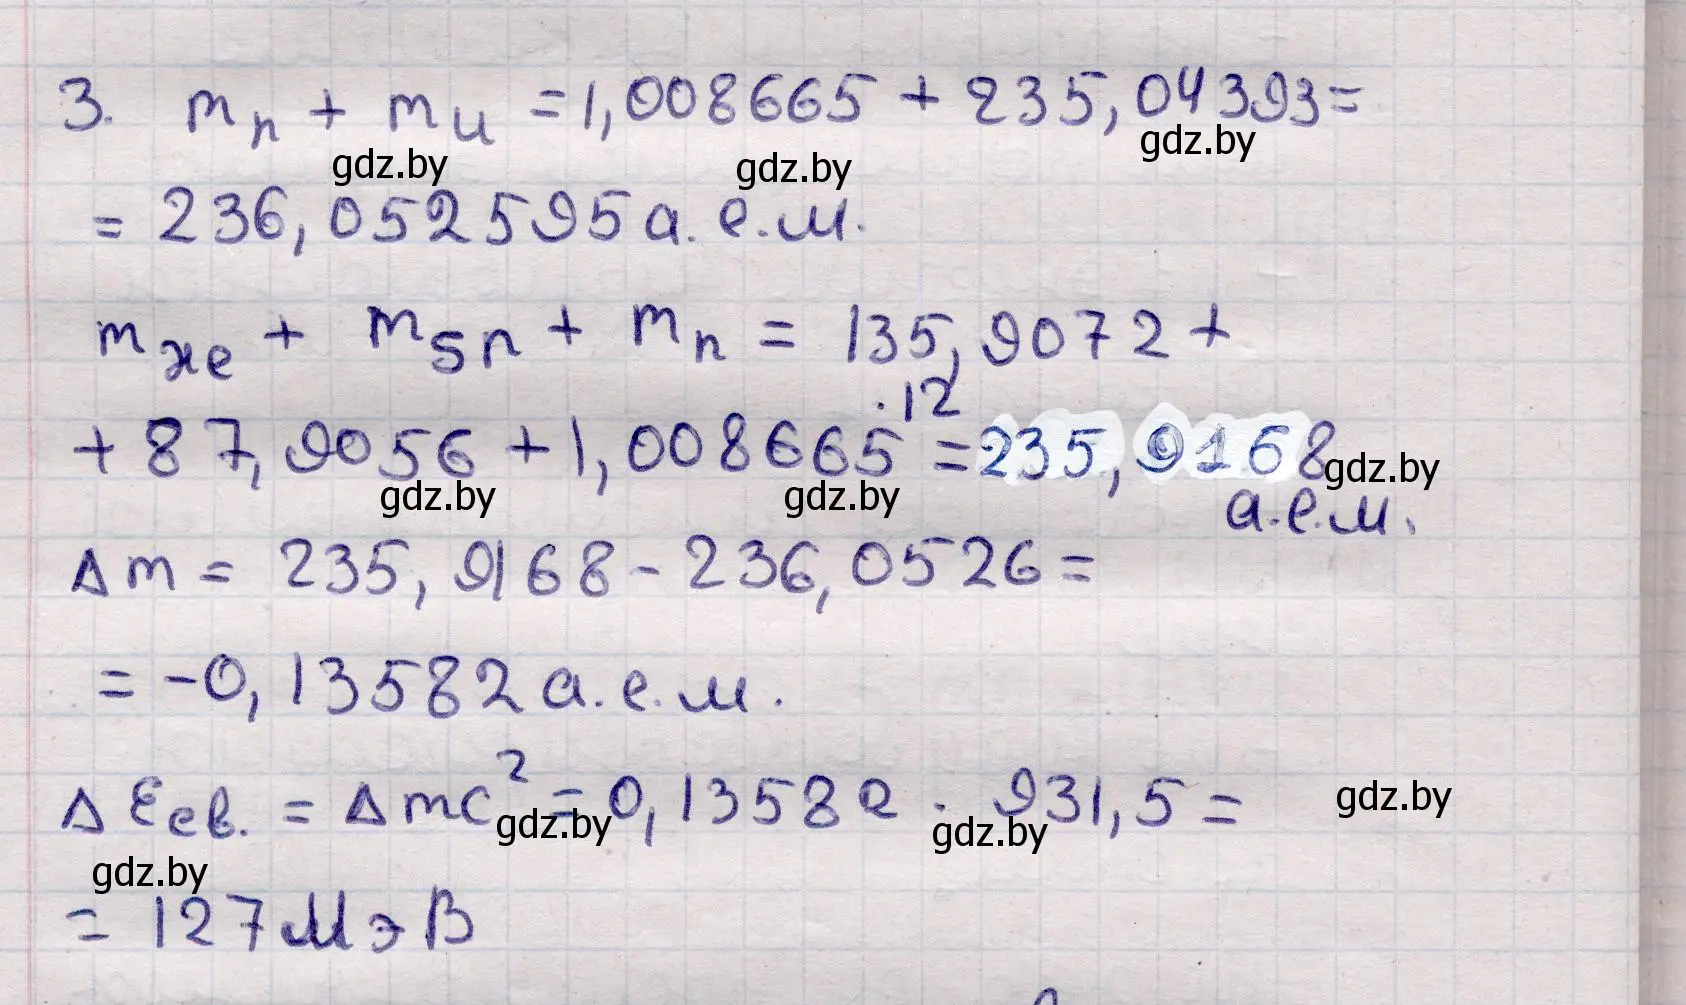 3. m_n + m_U = 1,008665 + 235,04393 =
gdz.by gdz.by gdz.by
= 236,052595 а.е.м.
m_Xe + m_Sn + m_n = 135,9072 +
+ 87,9056 + 1,008665 · 12 = 235,9168
gdz.by gdz.by gdz.by
а.е.м.
Δm = 235,9168 - 236,0526 =
= -0,13582 а.е.м.
ΔEсв. = Δmc² = 0,13582 · 931,5 =
gdz.by gdz.by gdz.by
gdz.by
= 127 МэВ